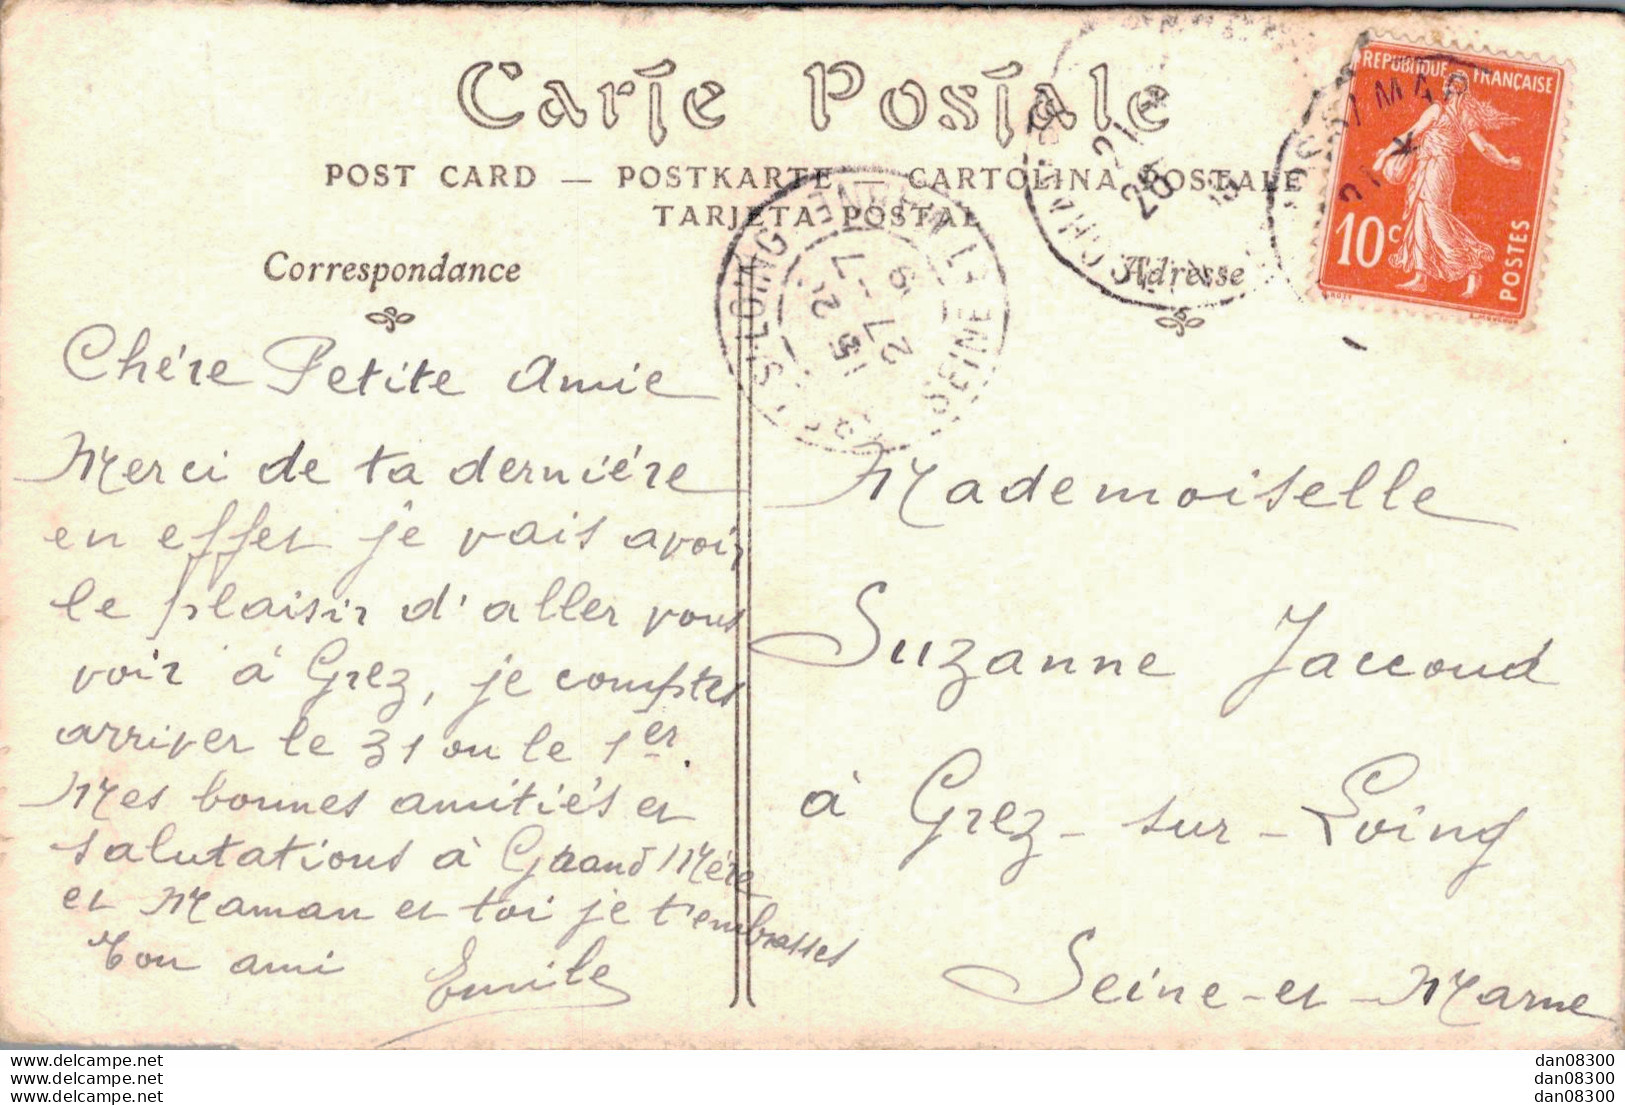 Carte Postale
POST CARD — POSTKARTE — CARTOLINA POSTALE
TARJETA POSTAL
Correspondance
Adresse
REPUBLIQUE FRANÇAISE
10c
POSTES
Chére Petite Amie
Merci de ta derniére
en effet je vais avoir
le plaisir d'aller vous
voir à Grez, je comptes
arriver le 31 ou le 1er.
Mes bonnes amitiés et
salutations à Grand Mére
et Maman et toi je t'embrasses
Ton ami Emile
Mademoiselle
Suzanne Jaccoud
à Grez-sur-Loing
Seine-et-Marne
www.delcampe.net
www.delcampe.net
www.delcampe.net
dan08300
dan08300
dan08300